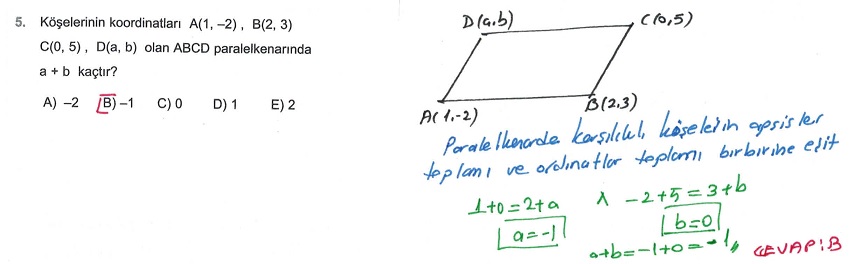 5. Köşelerinin koordinatları A(1, –2) , B(2, 3)
C(0, 5) , D(a, b) olan ABCD paralelkenarında
a + b kaçtır?
A) –2 B) –1 C) 0 D) 1 E) 2
D(a,b)
C(0,5)
A(1,-2)
B(2,3)
Paralelkenarda karşılıklı köşelerin apsisler
toplamı ve ordinatlar toplamı birbirine eşit
1+0=2+a λ -2+5=3+b
a=-1 b=0
a+b=-1+0=-1,,
CEVAP:B